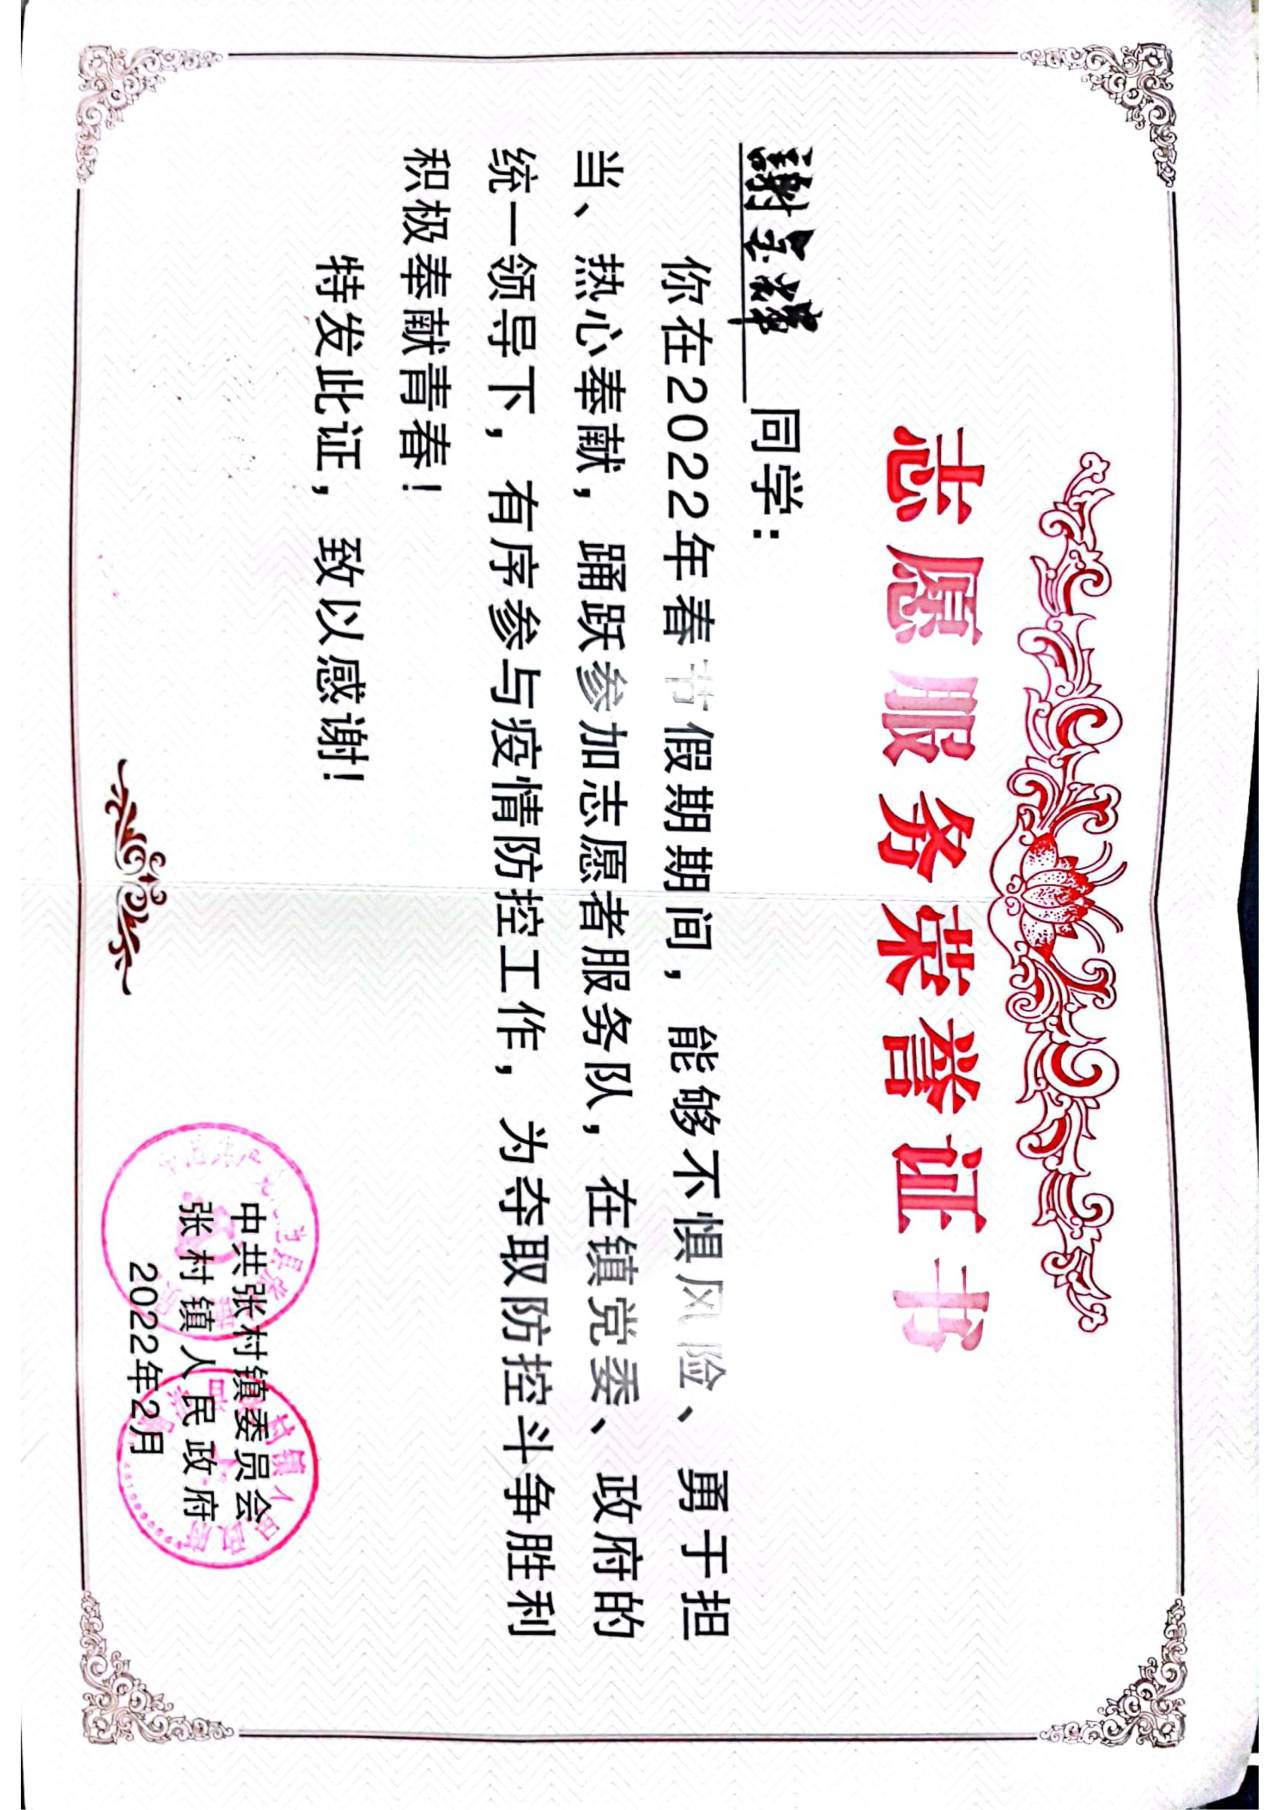 志愿服务荣誉证书
謝玉輝 同学：
你在2022年春节假期期间，能够不惧风险、勇于担
当、热心奉献，踊跃参加志愿者服务队，在镇党委、政府的
统一领导下，有序参与疫情防控工作，为夺取防控斗争胜利
积极奉献青春！
特发此证，致以感谢！
中共张村镇委员会
张村镇人民政府
2022年2月